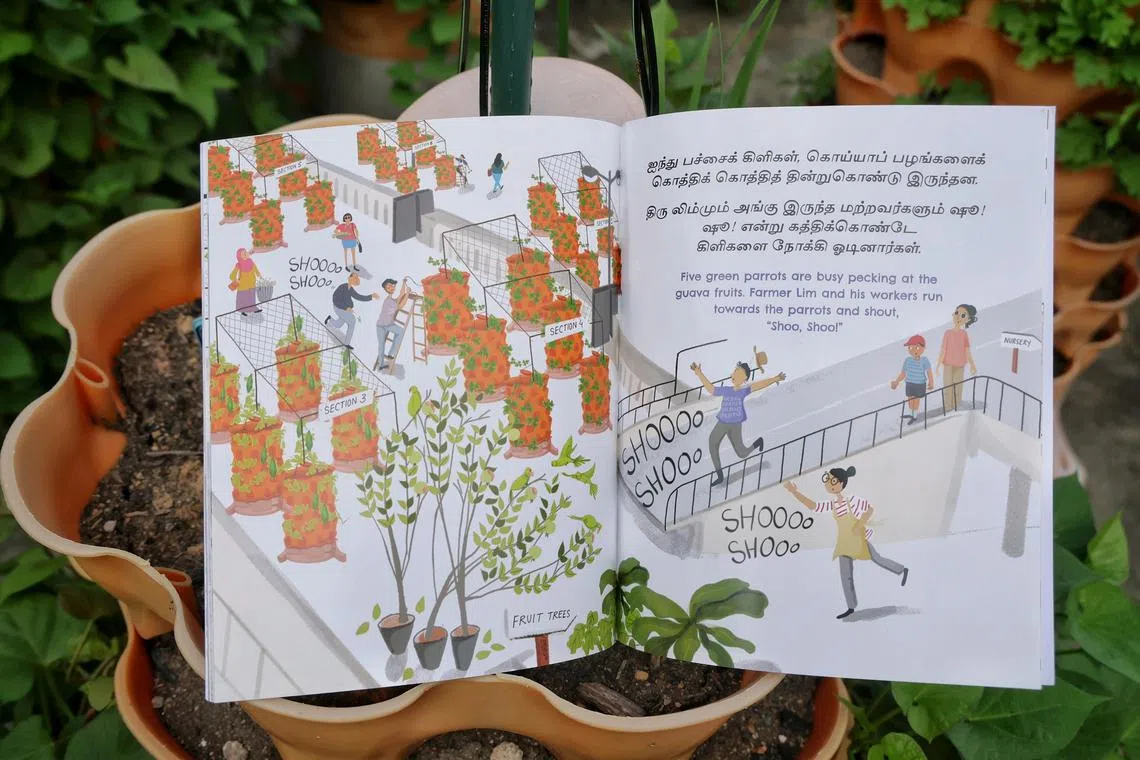 SECTION 5
SHOOoo
SHOOo
SECTION 4
SECTION 3
FRUIT TREES
ஐந்து பச்சைக் கிளிகள், கொய்யாப் பழங்களைக்
கொத்திக் கொத்தித் தின்றுகொண்டு இருந்தன.
திரு லிம்மும் அங்கு இருந்த மற்றவர்களும் ஷூ!
ஷூ! என்று கத்திக்கொண்டே
கிளிகளை நோக்கி ஓடினார்கள்.
Five green parrots are busy pecking at the
guava fruits. Farmer Lim and his workers run
towards the parrots and shout,
“Shoo, Shoo!”
NURSERY
SHOOOo
SHOOo
SHOOOo
SHOOo